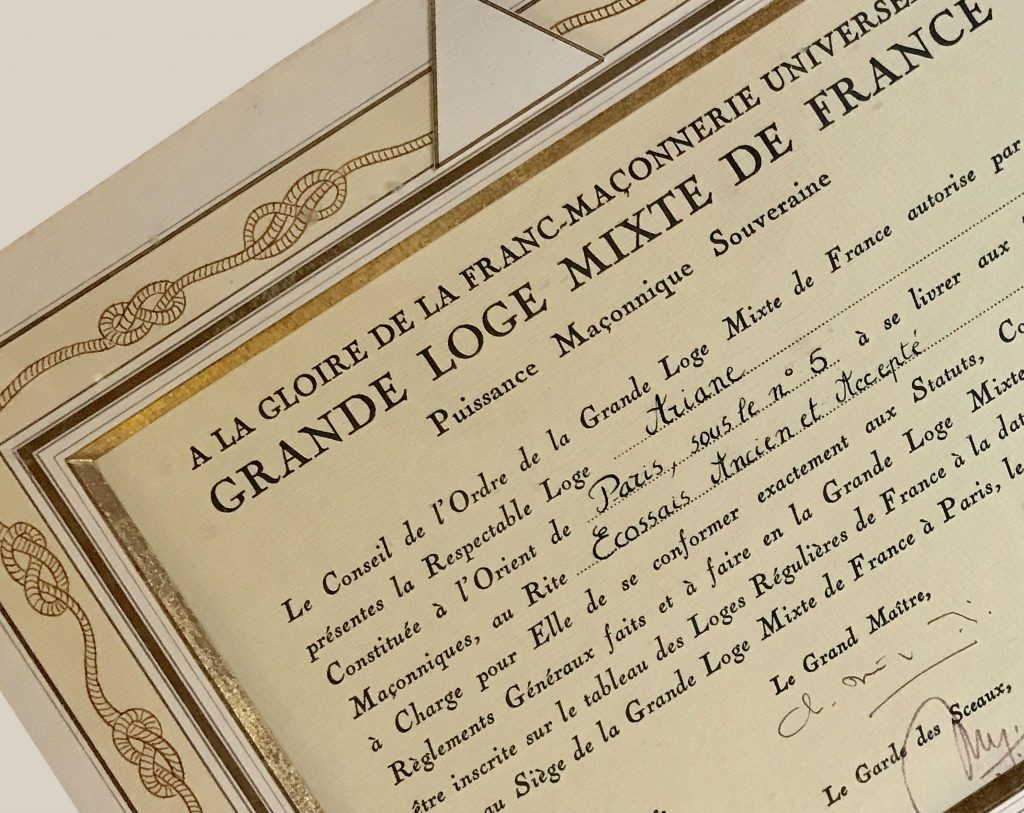 A LA GLOIRE DE LA FRANC-MAÇONNERIE
GRANDE LOGE MIXTE DE FRANCE
Puissance Maçonnique Souveraine
Le Conseil de l'Ordre de la Grande Loge Mixte de France autorise par
présentes la Respectable Loge Ariane
Constituée à l'Orient de Paris, sous le n° 5 à se livrer aux
Maçonniques, au Rite Ecossais Ancien et Accepté
à Charge pour Elle de se conformer exactement aux Statuts,
Règlements Généraux faits et à faire en la Grande Loge Mixte
être inscrite sur le tableau des Loges Régulières de France à la
au Siège de la Grande Loge Mixte de France à Paris, le
Le Grand Maître,
Le Garde des Sceaux,